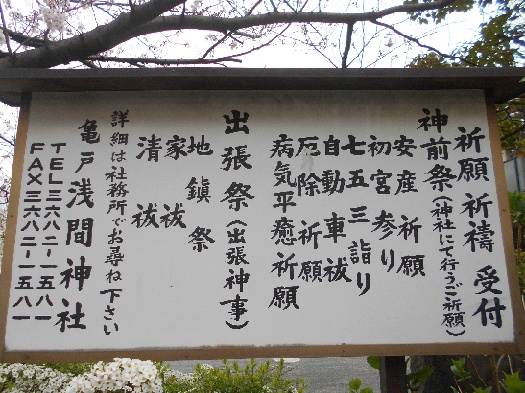 祈願祈禱受付
神前祭(神社にて行うご祈願)
安産祈願
初宮参り
七五三詣り
自動車祓
厄除祈願
病気平癒祈願
出張祭(出張神事)
地鎮祭
家祓
清祓
詳細は社務所でお尋ね下さい
亀戸浅間神社
TEL三六八二-一五八一
FAX三六八二-一五八一